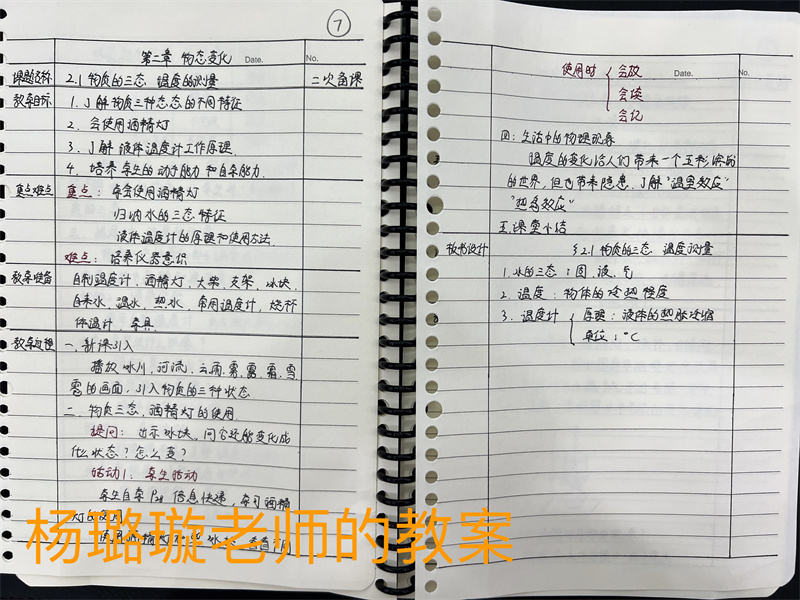 7
第二章 物态变化 Date. No.
课题名称 2.1 物质的三态 温度的测量 二次备课
教学目标 1. 了解物质三种态态的不同特征
2. 会使用酒精灯
3. 了解液体温度计工作原理
4. 培养学生的动手能力和自学能力.
重点难点 重点: 学会使用酒精灯
归纳水的三态特征
液体温度计的原理和使用方法.
难点: 培养仪器意识
教学准备 自制温度计, 酒精灯, 火柴, 支架, 冰块,
自来水, 温水, 热水, 常用温度计, 烧杯
体温计 学具
教学过程 一. 新课引入
播放冰川, 河流, 云雨, 雾, 露, 霜, 雪
雹的画面, 引入物质的三种状态
二. 物质三态, 酒精灯的使用.
提问: 出示冰块, 问它还能变化成
什么状态? 怎么变?
活动1: 学生活动
学生自学 信息快递, 学习酒精
灯的使用
杨璐璇老师的教案
使用时 会放 Date. No.
会读
会记
四: 生活中的物理现象
温度的变化给人们带来一个五彩缤纷
的世界, 但也带来隐患, 了解"温室效应"
"热岛效应"
五. 课堂小结
板书设计 §2.1 物质的三态 温度测量
1. 水的三态: 固. 液. 气
2. 温度: 物体的冷热程度
3. 温度计 原理: 液体的热胀冷缩
单位: ℃